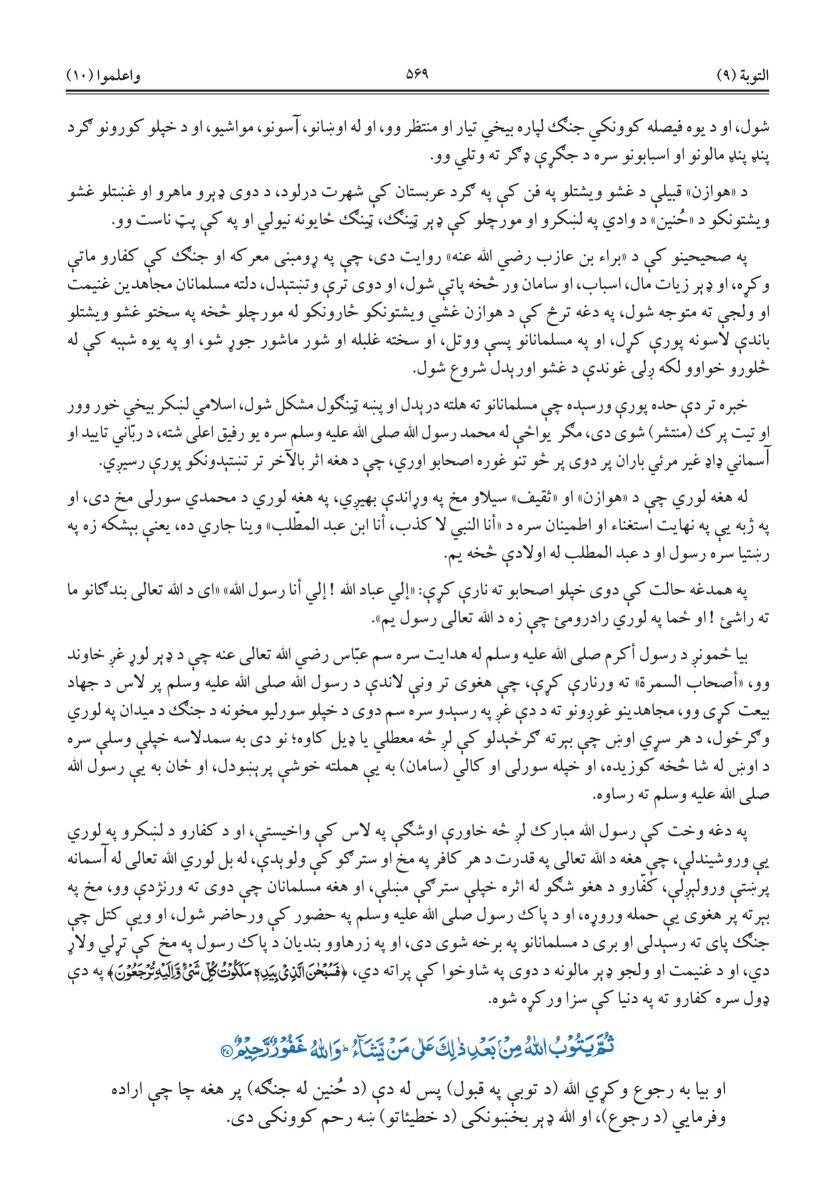 التوبة (۹) ۵۶۹ واعلموا (۱۰)
شول، او د يوه فيصله كوونكي جنګ لپاره بيخي تيار او منتظر وو، او له اوښانو، آسونو، مواشيو، او د خپلو كورونو ګرد
پنډ پنډ مالونو او اسبابونو سره د جګړې ډګر ته وتلي وو.
د «هوازن» قبيلې د غشو ويشتلو په فن كې په ګرد عربستان كې شهرت درلود، د دوى ډېرو ماهرو او غښتلو غشو
ويشتونكو د «حُنين» د وادي په لښكرو او مورچلو كې ډېر ټينګ، ټينګ ځايونه نيولي او په كې پټ ناست وو.
په صحيحينو كې د «براء بن عازب رضي الله عنه» روايت دى، چې په ړومبنى معركه او جنګ كې كفارو ماتې
وكړه، او ډېر زيات مال، اسباب، او سامان ور څخه پاتې شول، او دوى ترې وتښتېدل، دلته مسلمانان مجاهدين غنيمت
او ولجې ته متوجه شول، په دغه ترڅ كې د هوازن غشي ويشتونكو څارونكو له مورچلو څخه په سختو غشو ويشتلو
باندې لاسونه پورې كړل، او په مسلمانانو پسې ووتل، او سخته غلبله او شور ماشور جوړ شو، او په يوه شېبه كې له
څلورو خواوو لكه ږلۍ غوندې د غشو اورېدل شروع شول.
خبره تر دې حده پورې ورسېده چې مسلمانانو ته هلته درېدل او پښه ټينګول مشكل شول، اسلامي لښكر بيخي خور وور
او تيت پرك (منتشر) شوى دى، مګر يواځې له محمد رسول الله صلى الله عليه وسلم سره يو رفيق اعلى شته، د ربّاني تاييد او
آسماني ډاډ غير مرئي باران پر دوى پر څو تنو غوره اصحابو اوري، چې د هغه اثر بالآخر تر تښتېدونكو پورې رسيږي.
له هغه لوري چې د «هوازن» او «ثقيف» سيلاو مخ په وړاندې بهيږي، په هغه لوري د محمدي سورلى مخ دى، او
په ژبه يې په نهايت استغناء او اطمينان سره د «أنا النبي لا كذب، أنا ابن عبد المطّلب» وينا جاري ده، يعنې بېشكه زه په
رښتيا سره رسول او د عبد المطلب له اولادې څخه يم.
په همدغه حالت كې دوى خپلو اصحابو ته نارې كړې: «إلي عباد الله ! إلي أنا رسول الله» «اى د الله تعالى بندګانو ما
ته راشئ ! او ځما په لوري رادرومئ چې زه د الله تعالى رسول يم».
بيا ځمونږ د رسول أكرم صلى الله عليه وسلم له هدايت سره سم عبّاس رضي الله تعالى عنه چې د ډېر لوړ غږ خاوند
وو، «أصحاب السمرة» ته ورنارې كړې، چې هغوى تر ونې لاندې د رسول الله صلى الله عليه وسلم پر لاس د جهاد
بيعت كړى وو، مجاهدينو غوږونو ته د دې غږ په رسېدو سره سم دوى د خپلو سورليو مخونه د جنګ د ميدان په لوري
وګرځول، د هر سړي اوښ چې بېرته ګرځېدلو كې لږ څه معطلي يا ډيل كاوه؛ نو دى به سمدلاسه خپلې وسلې سره
د اوښ له شا څخه كوزيده، او خپله سورلى او كالي (سامان) به يې هملته خوشې پرېښودل، او ځان به يې رسول الله
صلى الله عليه وسلم ته رساوه.
په دغه وخت كې رسول الله مبارك لږ څه خاورې اوشګې په لاس كې واخيستې، او د كفارو د لښكرو په لوري
يې وروشيندلې، چې هغه د الله تعالى په قدرت د هر كافر په مخ او سترګو كې ولوېدې، له بل لوري الله تعالى له آسمانه
پرښتې ورولېږلې، كفّارو د هغو شګو له اثره خپلې سترګې مښلې، او هغه مسلمانان چې دوى ته ورنژدې وو، مخ په
بېرته پر هغوى يې حمله وروړه، او د پاك رسول صلى الله عليه وسلم په حضور كې ورحاضر شول، او ويې كتل چې
جنګ پاى ته رسېدلى او برى د مسلمانانو په برخه شوى دى، او په زرهاوو بنديان د پاك رسول په مخ كې تړلي ولاړ
دي، او د غنيمت او ولجو ډېر مالونه د دوى په شاوخوا كې پراته دي، ﴿فَسُبْحٰنَ الَّذِيْ بِيَدِهٖ مَلَكُوْتُ كُلِّ شَيْءٍ وَّاِلَيْهِ تُرْجَعُوْنَ﴾ په دې
ډول سره كفارو ته په دنيا كې سزا وركړه شوه.
ثُمَّ يَتُوْبُ اللّٰهُ مِنْۢ بَعْدِ ذٰلِكَ عَلٰى مَنْ يَّشَآءُ ۭ وَاللّٰهُ غَفُوْرٌ رَّحِيْمٌ ۝۲۷
او بيا به رجوع وكړي الله (د توبې په قبول) پس له دې (د حُنين له جنګه) پر هغه چا چې اراده
وفرمايي (د رجوع)، او الله ډېر بخښونكى (د خطيئاتو) ښه رحم كوونكى دى.